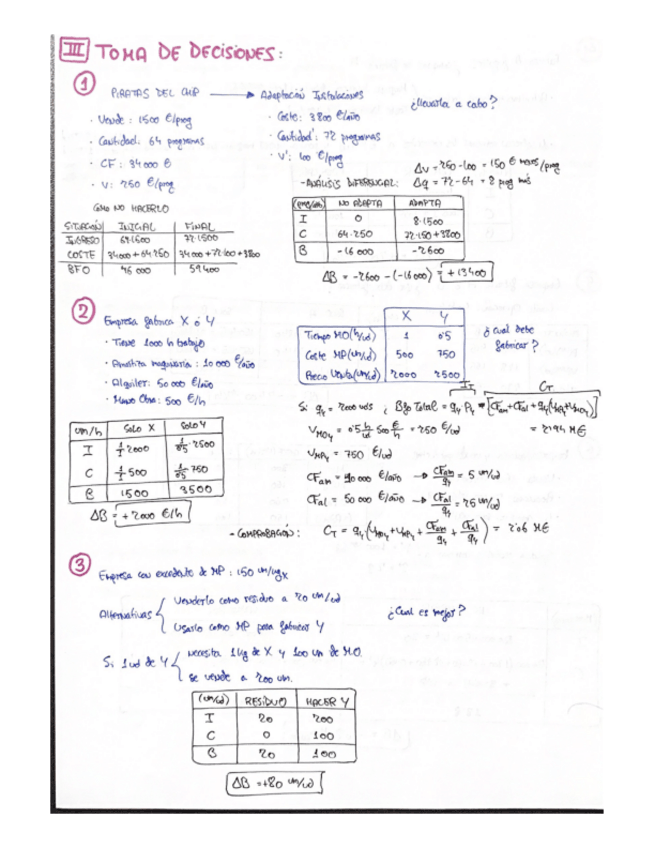 III TOMA DE DECISIONES:
1
PIRATAS DEL CHIP → Adaptación Instalaciones
¿llevarla a cabo?
· Vende: 1500 €/prog
· Cantidad: 64 programas
· CF: 34000 €
· v: 250 €/prog
· Coste: 3800 €/año
· Cantidad': 72 programas
· v': 100 €/prog
Δv = 250-100 = 150 € menos/prog
- ANÁLISIS DIFERENCIAL: Δq = 72-64 = 8 prog más
CÓMO NO HACERLO
SITUACIÓN INICIAL FINAL
INGRESO 64·1500 72·1500
COSTE 34000+64·250 34000+72·100+3800
BFO 46 000 59400
NO ADAPTA ADAPTA
I 0 8·1500
C 64·250 72·150+3800
B -16 000 -2600
ΔB = -2600 - (-16000) = +13400
2
Empresa fabrica X ó Y
· Tiene 1000 h trabajo
· Amortiza maquinaria: 10 000 €/año
· Alquiler: 50 000 €/año
· Mano Obra: 500 €/h
X Y
Tiempo MO (h/ud) 1 0'5
Coste MP (um/ud) 500 750
Precio Venta (um/ud) 2000 2500
¿Cuál debe
fabricar?
um/h Solo X Solo Y
I 1/1 2000 1/0'5 · 2500
C 1/1 500 1/0'5 750
B 1500 3500
ΔB = +2000 €/h
I_T C_T
Si q_Y = 2000 uds ¿ Bfo Total = q_Y P_Y - [CF_am + CF_al + q_Y (V_MP_Y + V_MO_Y)]
V_MO_Y = 0'5 h/ud 500 €/h = 250 €/ud = 2'94 M€
V_MP_Y = 750 €/ud
CF_am = 10 000 €/año → CF_am/q_Y = 5 um/ud
CF_al = 50 000 €/año → CF_al/q_Y = 25 um/ud
- COMPROBACIÓN: C_T = q_Y (V_MO_Y + V_MP_Y + CF_am/q_Y + CF_al/q_Y) = 2'06 M€
3
Empresa con excedente de MP: 150 um/kg X
Alternativas { Venderlo como residuo a 20 um/ud
Usarlo como MP para fabricar Y
¿Cual es mejor?
Si 1 ud de Y { necesita 1 kg de X y 100 um de MO.
se vende a 200 um.
(um/ud) RESIDUO HACER Y
I 20 200
C 0 100
B 20 100
ΔB = +80 um/ud